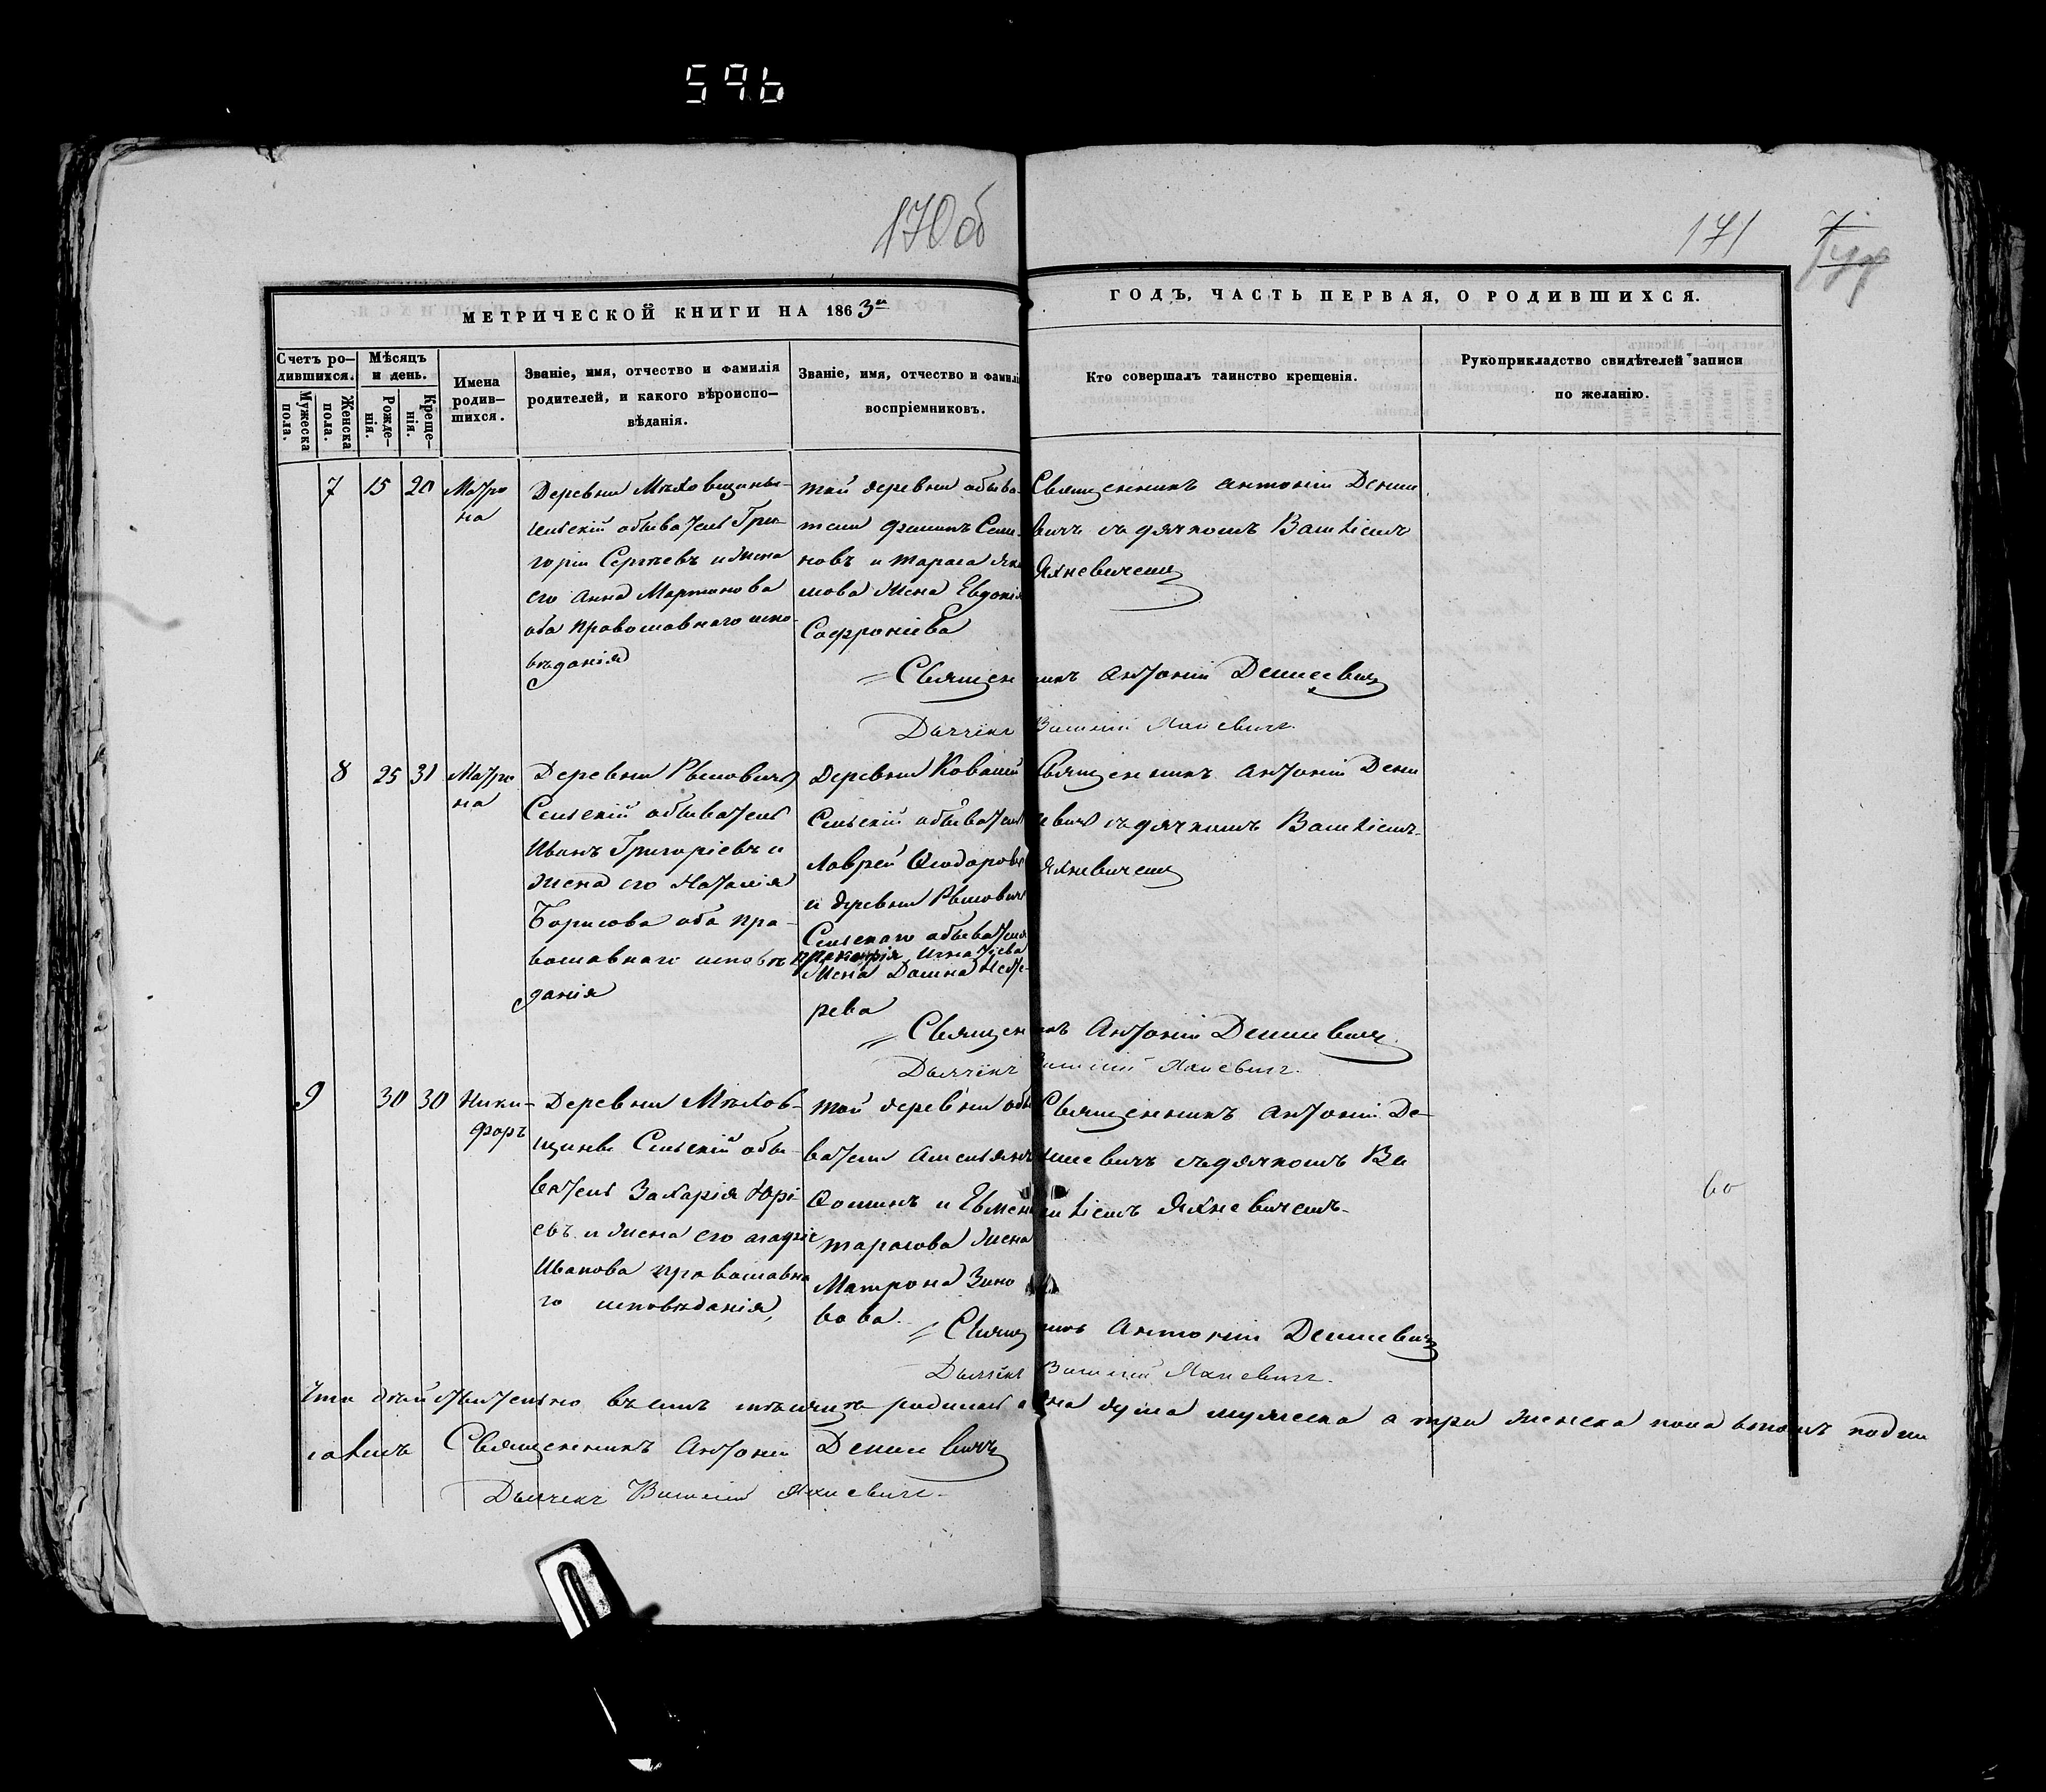 59b
170 об
171
МЕТРИЧЕСКОЙ КНИГИ НА 1863й
ГОДЪ, ЧАСТЬ ПЕРВАЯ, О РОДИВШИХСЯ.
Счетъ ро-
дившихся.
Мужеска пола.
Женска пола.
Мѣсяцъ
и день.
Рожде-
нія.
Креще-
нія.
Имена
родив-
шихся.
Званіе, имя, отчество и фамилія
родителей, и какого вѣроиспо-
вѣданія.
Званіе, имя, отчество и фамилія
воспріемниковъ.
Кто совершалъ таинство крещенія.
Рукоприкладство свидѣтелей записи
по желанію.
7 15 20
Матро
на
Деревни Мѣховщины
сельскій обыватель Гри-
горій Сергѣевъ и жена
его Анна Мартинова
оба православнаго испо-
вѣданія
той деревни обыва-
тели Филипъ Семе-
новъ и Тараса Яки
мова жена Евдокія
Софроніева
Священникъ Антоній Дени
вичъ съ дячкомъ Василіемъ
Яхневичемъ
Священникъ Антоній Денисевичъ
Дьячекъ Василій Яхневичъ
8 25 31
Матро
на
Деревни
Сельскій обыватель
Иванъ Григоріевъ и
жена его Наталія
Борисова оба пра-
вославнаго исповѣ
данія
Деревни
Сельскій обыватель
Лаврей Ѳеодоровъ
и деревни
Сельскаго обывателя
Игнатіева
жена Домна
рева
Священникъ Антоній Дени
евичъ съ дячкомъ Василіемъ
Яхневичемъ
Священникъ Антоній Денисевичъ
Дьячекъ Василій Яхневичъ
9 30 30
Ники-
форъ
Деревни Мѣхов-
щины Сельскій обы-
ватель Захарія Юрі
евъ и жена его Агафія
Иванова православна
го исповѣданія,
той деревни обы
ватели Амельянъ
Ѳоминъ и
Тарасова жена
Матрона Зино
вова.
Священникъ Антоній Де-
нисевичъ съ дячкомъ Ва
силіемъ Яхневичемъ
Священникъ Антоній Денисевичъ
Дьячекъ Василій Яхневичъ
Что дѣйствительно въ семъ мѣсяцѣ родилась одна душа мужеска а три женска пола въ томъ подпи
суемъ Священникъ Антоній Денисевичъ
Дьячекъ Василій Яхневичъ